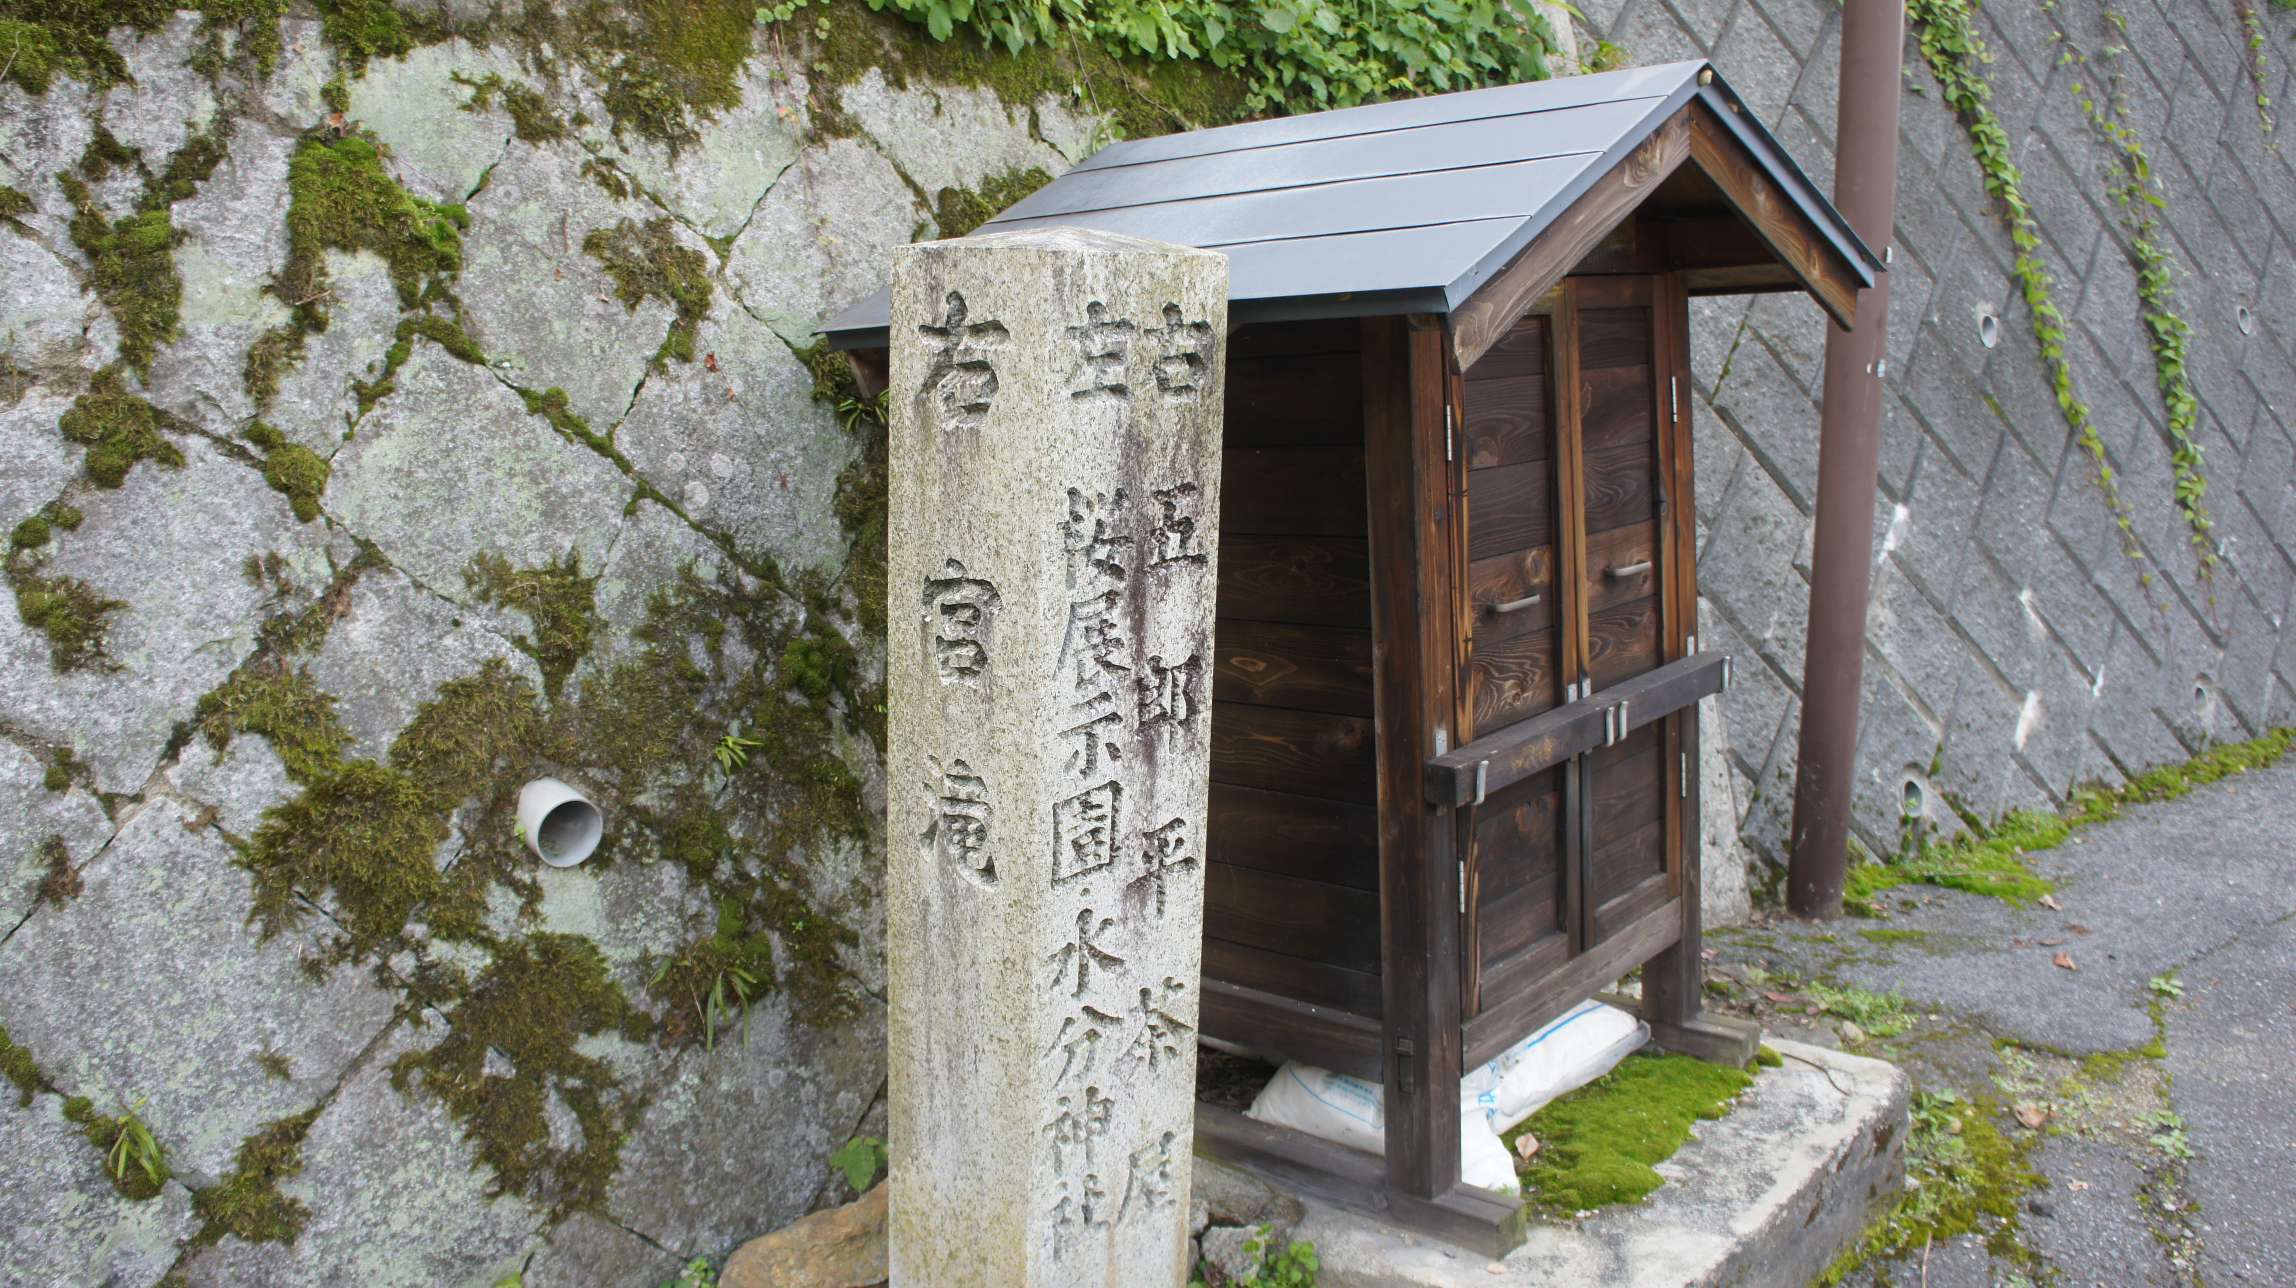 右 五郎平茶屋
左 桜展示園・水分神社
右 宮滝